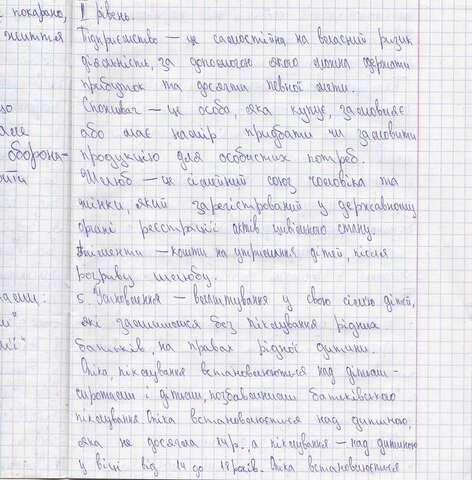 покарано,
життя
що
оборона-
ІІ рівень
Підприємство – це самостійна на власний ризик
діяльність, за допомогою якого можна одержати
прибуток та досягти певної мети.
Споживач – це особа, яка купує, замовляє
або має намір придбати чи замовити
продукцію для особистих потреб.
Шлюб – це сімейний союз чоловіка та
жінки, який зарегістрований у державному
органі реєстрації актів цивільного стану.
Аліменти – кошти на утримання дітей, після
розриву шлюбу.
5. Усиновлення – влаштування у свою сім'ю дітей,
які залишилися без піклування рідних
батьків, на правах рідної дитини.
Опіка, піклування встановлюються над дітьми-
сиротами і дітьми, позбавленими батьківського
піклування. Опіка встановлюється над дитиною,
яка не досягла 14 р., а піклування – над дитиною
у віці від 14 до 18 років. Опіка встановлюється